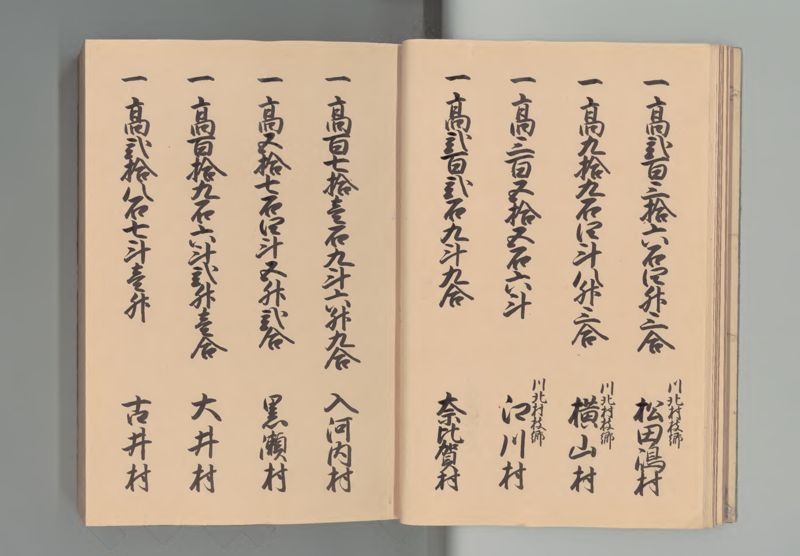 一高弐百三拾六石四升三合
川北村枝郷
松田渇村
一高九拾九石四斗八升三合
川北村枝郷
横山村
一高三百五拾五石六斗
川北村枝郷
江川村
一高弐百弐石九斗九合
奈比賀村
一高百七拾壱石九斗六升九合
入河内村
一高五拾七石四斗五升弐合
黒瀬村
一高百拾九石六斗弐升壱合
大井村
一高弐拾八石七斗壱升
古井村